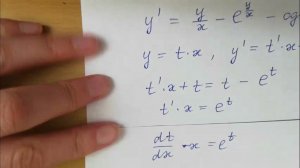 y' = y/x - e^(y/x) - og
y = t·x, y' = t'·x
t'·x + t = t - e^t
t'·x = e^t
dt/dx · x = e^t